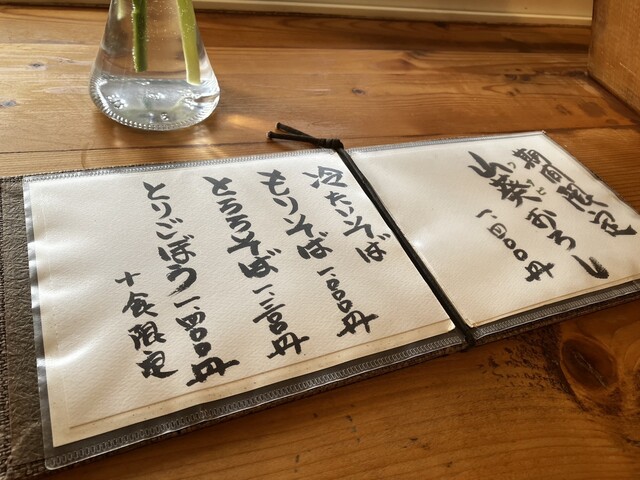 期間限定
山葵おろし
わさび
一、四〇〇円
冷たいそば
もりそば 一、〇〇〇円
とろろそば 一、三〇〇円
とりごぼう 一、四〇〇円
十食限定